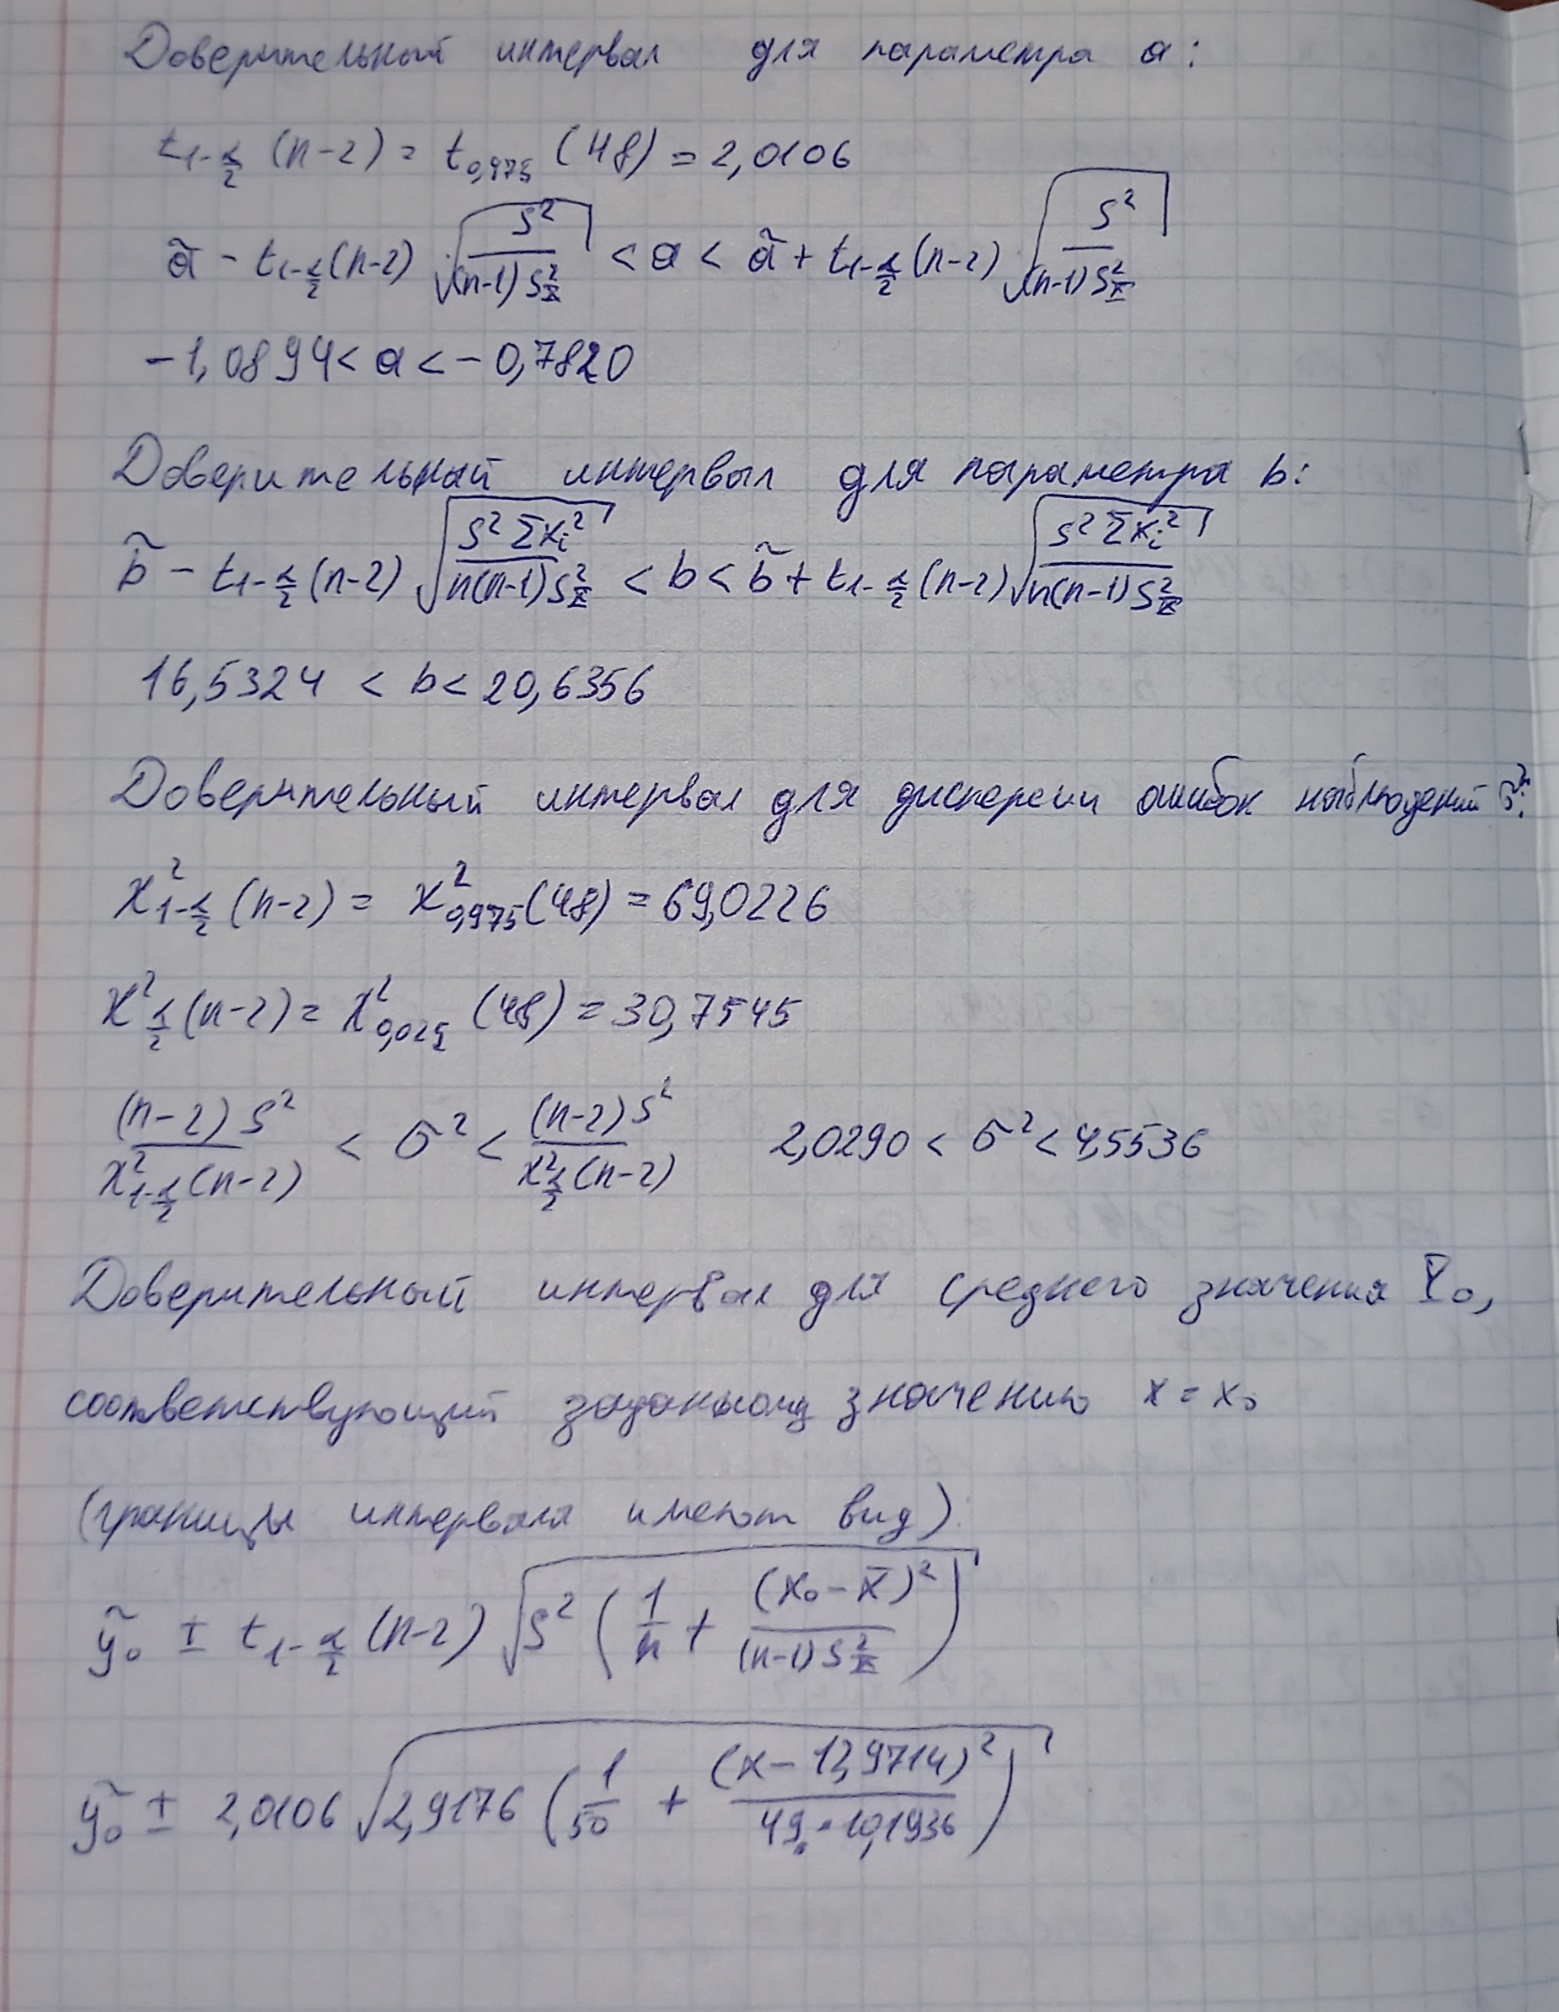 Доверительный интервал для параметра a:
t_{1-α/2} (n-2) = t_{0,975} (48) = 2,0106
ã - t_{1-α/2}(n-2) √(S²/((n-1)S²_x)) < a < ã + t_{1-α/2}(n-2) √(S²/((n-1)S²_x))
-1,0894 < a < -0,7820
Доверительный интервал для параметра b:
b̃ - t_{1-α/2}(n-2) √(S² Σx_i²/(n(n-1)S²_x)) < b < b̃ + t_{1-α/2}(n-2) √(S² Σx_i²/(n(n-1)S²_x))
16,5324 < b < 20,6356
Доверительный интервал для дисперсии ошибок наблюдений σ²:
χ²_{1-α/2}(n-2) = χ²_{0,975}(48) = 69,0226
χ²_{α/2}(n-2) = χ²_{0,025}(48) = 30,7545
(n-2)S²/χ²_{1-α/2}(n-2) < σ² < (n-2)S²/χ²_{α/2}(n-2) 2,0290 < σ² < 4,5536
Доверительный интервал для среднего значения Y₀,
соответствующий заданному значению x = x₀
(границы интервала имеют вид)
ỹ₀ ± t_{1-α/2}(n-2) √(S² (1/n + (x₀ - x̄)²/((n-1)S²_x)))
ỹ₀ ± 2,0106 √(2,9176 (1/50 + (x - 12,9714)²/(49 · 10,1936)))